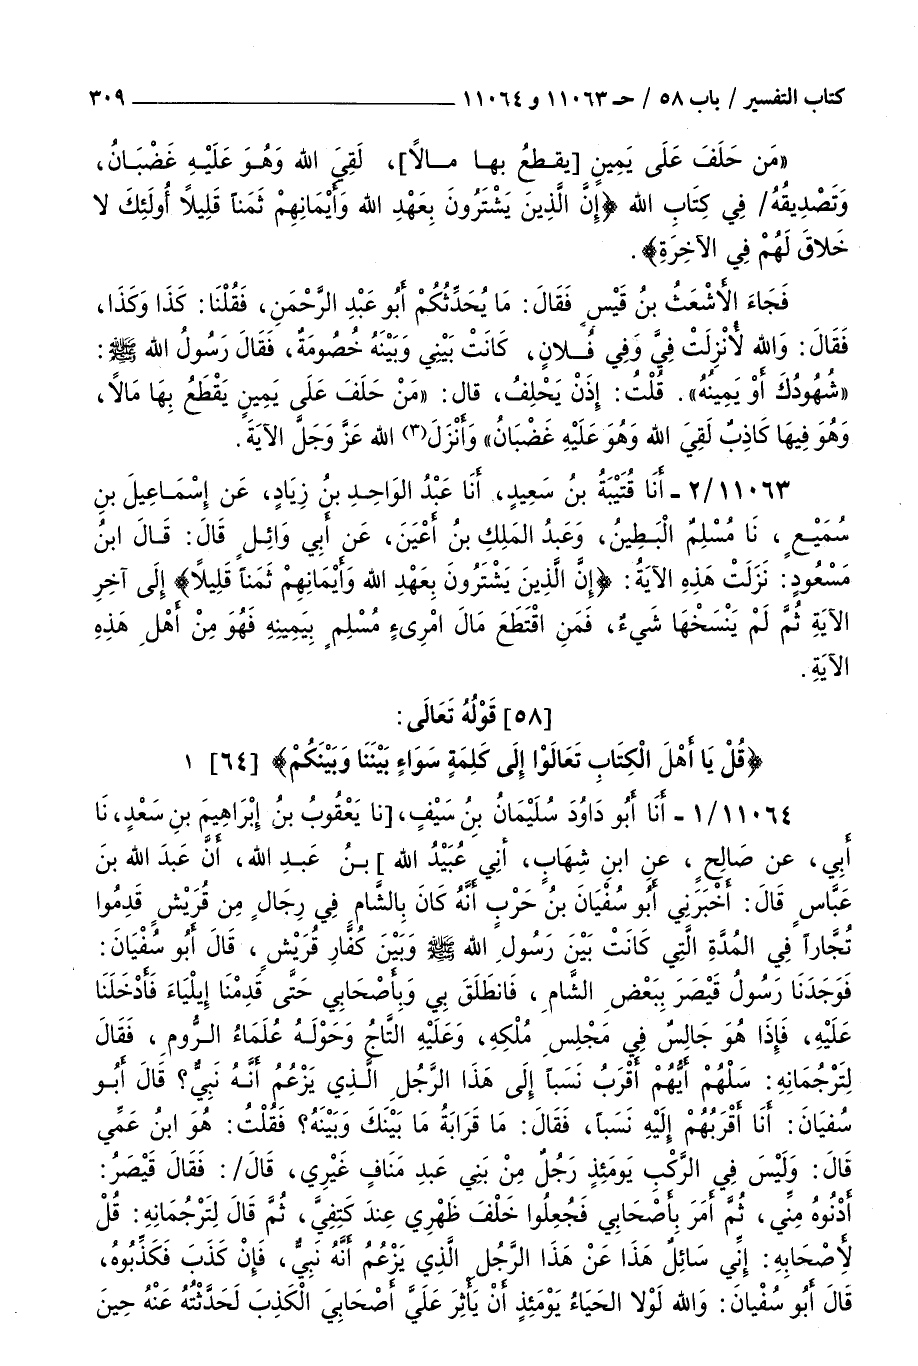 كتاب التفسير / باب ٥٨ / حـ ١١٠٦٣ و ١١٠٦٤ ــــــــــــــــــــ ٣٠٩
«مَن حَلَفَ عَلَى يَمِينٍ [يقـطعُ بهـا مـالاً]، لَقِيَ الله وَهُـوَ عَلَيْـهِ غَضْبَـانُ،
وَتَصْدِيقُهُ/ فِي كِتَابِ الله ﴿إِنَّ الَّذِينَ يَشْتَرُونَ بِعَهْدِ الله وَأَيْمَانِهِمْ ثَمَناً قَلِيلاً أُولَئِكَ لا
خَلاقَ لَهُمْ فِي الآخِرَةِ﴾.
فَجَاءَ الأَشْعَثُ بنُ قَيْسٍ فَقَالَ: مَا يُحَدِّثُكُمْ أَبُو عَبْدِ الرَّحْمَنِ، فَقُلْنَا: كَذَا وَكَذَا،
فَقَالَ: وَالله لأُنْزِلَتْ فِيَّ وَفِي فُـلانٍ، كَانَتْ بَيْنِي وَبَيْنَهُ خُصُومَةٌ، فَقَالَ رَسُولُ الله ﷺ:
«شُهُودُكَ أَوْ يَمِينُهُ». قُلْتُ: إِذَنْ يَحْلِفُ، قال: «مَنْ حَلَفَ عَلَى يَمِينٍ يَقْطَعُ بِهَا مَالاً،
وَهُوَ فِيهَا كَاذِبٌ لَقِيَ الله وَهُوَ عَلَيْهِ غَضْبَانُ» وَأَنْزَلَ(٣) الله عَزَّ وَجَلَّ الآيَةَ.
٢/١١٠٦٣ ـ أَنَا قُتَيْبَةُ بنُ سَعِيدٍ، أَنَا عَبْدُ الوَاحِدِ بنُ زِيَادٍ، عَن إِسْمَاعِيلَ بنِ
سُمَيْعٍ، نَا مُسْلِمٌ الْبَطِينُ، وَعَبدُ المَلِكِ بنُ أَعْيَنَ، عَن أَبِي وَائِلٍ قَالَ: قَالَ ابنُ
مَسْعُودٍ: نَزَلَتْ هَذِهِ الآيَةُ: ﴿إِنَّ الَّذِينَ يَشْتَرُونَ بِعَهْدِ الله وَأَيْمَانِهِمْ ثَمَناً قَلِيلاً﴾ إِلَى آخِرِ
الآيَةِ ثُمَّ لَمْ يَنْسَخْهَا شَيءٌ، فَمَنِ اقْتَطَعَ مَالَ امْرِىءٍ مُسْلِمٍ بِيَمِينِهِ فَهُوَ مِنْ أَهْلِ هَذِهِ
الآيَةِ.
[٥٨] قَوْلُهُ تَعَالَى:
﴿قُلْ يَا أَهْلَ الْكِتَابِ تَعَالَوْا إِلَى كَلِمَةٍ سَوَاءٍ بَيْنَنَا وَبَيْنَكُمْ﴾ [٦٤] ١
١/١١٠٦٤ ـ أَنَا أَبُو دَاوُدَ سُلَيْمَانُ بنُ سَيْفٍ، [نا يَعْقُوبُ بنُ إِبْرَاهِيمَ بنِ سَعْدٍ، نَا
أَبِي، عن صَالِحٍ، عَنِ ابنِ شِهَابٍ، أَنِي عُبَيْدُ الله ] بـنُ عَبـدِ الله، أَنَّ عَبدَ الله بنَ
عَبَّاسٍ قَالَ: أَخْبَرَنِي أَبُو سُفْيَانَ بنُ حَرْبٍ أَنَّهُ كَانَ بِالشَّامِ فِي رِجَالٍ مِن قُرَيْشٍ قَدِمُوا
تُجَّاراً فِي المُدَّةِ الَّتِي كَانَتْ بَيْنَ رَسُولِ الله ﷺ وَبَيْنَ كُفَّارِ قُرَيْشٍ، قَالَ أَبُو سُفْيَانَ:
فَوَجَدَنَا رَسُولُ قَيْصَرَ بِبَعْضِ الشَّامِ، فَانطَلَقَ بِي وَبِأَصْحَابِي حَتَّى قَدِمْنَا إِيلْيَاءَ فَأَدْخَلَنَا
عَلَيْهِ، فَإِذَا هُوَ جَالِسٌ فِي مَجْلِسِ مُلْكِهِ، وَعَلَيْهِ التَّاجُ وَحَوْلَـهُ عُلَمَاءُ الـرُّومِ، فَقَالَ
لِتَرْجُمَانِهِ: سَلْهُمْ أَيُّهُمْ أَقْرَبُ نَسَباً إِلَى هَذَا الرَّجُلِ الَّـذِي يَزْعُمُ أَنَّـهُ نَبِيٌّ؟ قَالَ أَبُـو
سُفْيَانَ: أَنَا أَقْرَبُهُمْ إِلَيْهِ نَسَباً، فَقَالَ: مَا قَرَابَةُ مَا بَيْنَكَ وَبَيْنَهُ؟ فَقُلْتُ: هُوَ ابنُ عَمِّي
قَالَ: وَلَيْسَ فِي الرَّكْبِ يَومَئِذٍ رَجُلٌ مِنْ بَنِي عَبدِ مَنَافٍ غَيْرِي، قَالَ/: فَقَالَ قَيْصَرُ:
أَدْنُوهُ مِنِّي، ثُمَّ أَمَرَ بِأَصْحَابِي فَجُعِلُوا خَلْفَ ظَهْرِي عِندَ كَتِفِيَّ، ثُمَّ قَالَ لِتَرْجُمَانِهِ: قُلْ
لأَصْحَابِهِ: إِنِّي سَائِلٌ هَذَا عَنْ هَذَا الرَّجُلِ الَّذِي يَزْعُمُ أَنَّهُ نَبِيٌّ، فَإِنْ كَذَبَ فَكَذِّبُوهُ،
قَالَ أَبُو سُفْيَانَ: وَالله لَوْلا الحَيَاءُ يَوْمَئِذٍ أَنْ يَأْثِرَ عَلَيَّ أَصْحَابِيَ الْكَذِبَ لَحَدَّثْتُهُ عَنْهُ حِينَ